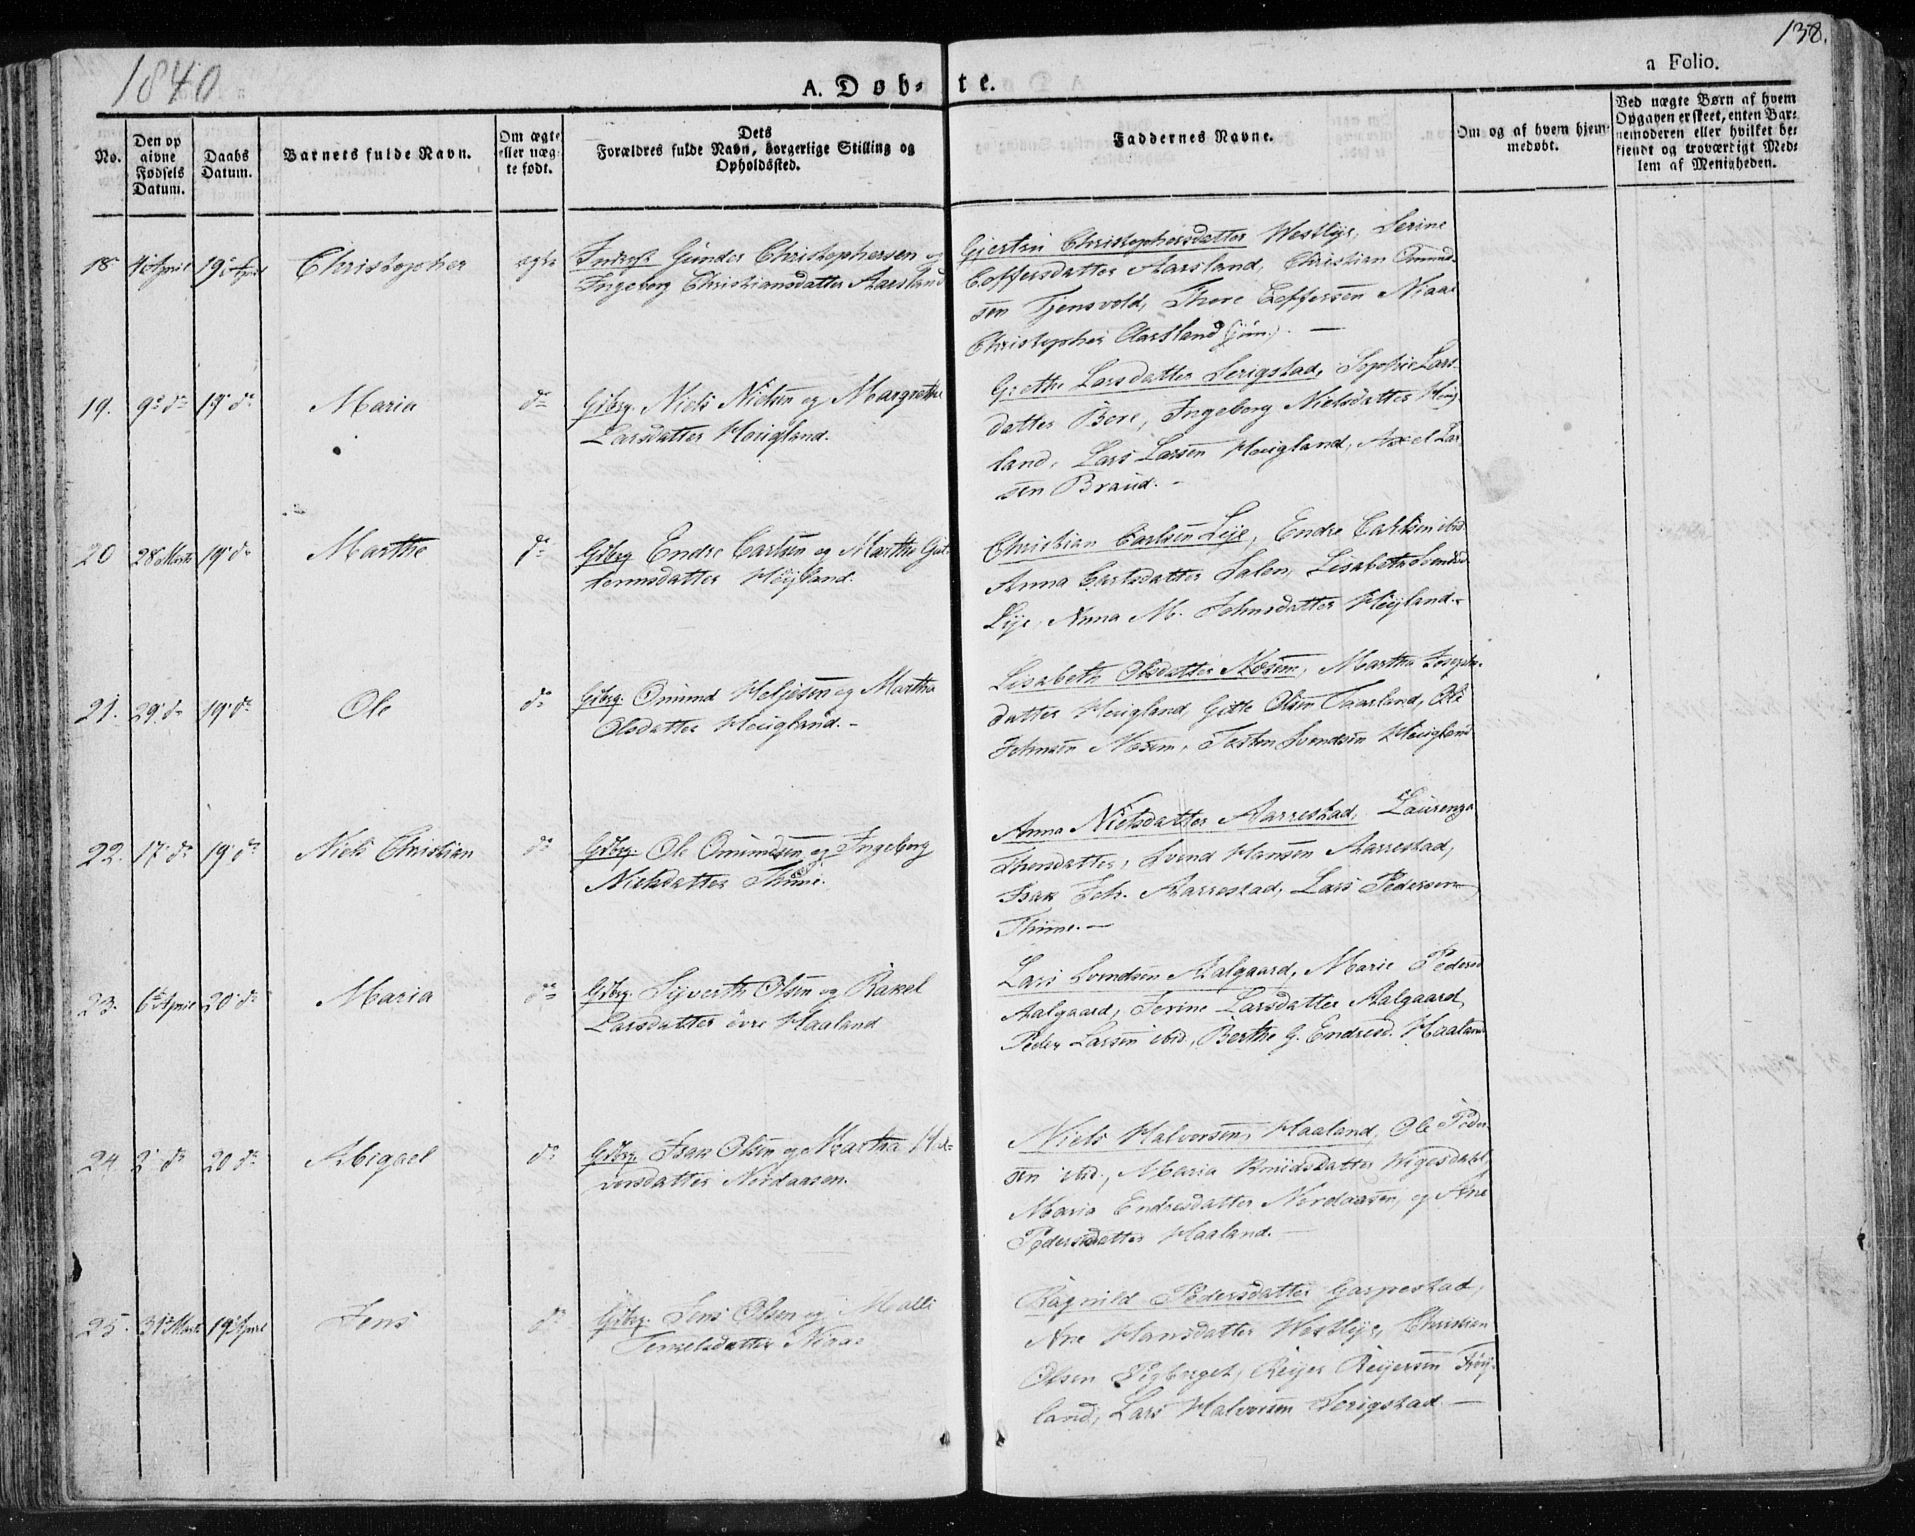 1840
138.
A. Døb-te.
a Folio.
No.
Den op
givne
Fødsels
Datum.
Daabs
Datum.
Barnets fulde Navn.
Om ægte
eller uæg-
te født.
Dets
Forældres fulde Navn, borgerlige Stilling og
Opholdssted.
Faddernes Navne.
Om og af hvem hjem-
medøbt.
Ved uægte Børn af hvem
Opgaven er skeet, enten Bar-
nemoderen eller hvilket be-
kjendt og troværdigt Med-
lem af Menigheden.
18. 4 April 19 April Christopher ægte Gunder Christophersen og
Ingeborg Christiansdatter Aarsland
Gjertru Christophersdatter Westlye, Serine
Toffersdatter Aarsland, Christian Omund-
sen Tjensvold, Thore Toffersen Niaa
Christopher Aarsland (jun).
19. 9 do 19 do Maria do Gbrg. Niels Nielsen og Margrethe
Larsdatter Hougland.
Grethe Larsdatter Serigstad, Sophie Lars-
datter Bore, Ingeborg Nielsdatter Houg-
land, Lars Larsen Hougland, Axel Lar-
sen Braud.
20 28 Marts 19 do Marthe do Gbrg Endre Carlsen og Marthe Gut-
tormsdatter Høyland.
Christian Carlsen Lye, Endre Carlsen ibid.
Anna Carlsdatter Salen, Lisabeth Svendsd.
Lye, Anna M. Johnsdatter Høyland.
21. 29 do 19 do Ole do Gbrg. Omund Heljesen og Martha
Olsdatter Hougland.
Lisabeth Olsdatter Nosem, Martha Josephs-
datter Hougland, Gitte Olsen Taarland, Ole
Johnsen Nosem, Tosten Svendsen Hougland
22. 17 do 19 do Niels Christian do Gbrg. Ole Omundsen og Ingeborg
Nielsdatter Thime.
Anna Nielsdatter Aarrestad, Laurenza
Thorsdatter, Svend Hansen Aarrestad,
Isak Joh. Aarrestad, Lars Pedersen
Thime.
23. 6 April 20 do Maria do Gbrg. Syverth Olsen og Rakel
Larsdatter övre Haaland
Lars Svendsen Aalgaard, Marie Peders
Aalgaard, Serine Larsdatter Aalgaard,
Peder Larsen ibid., Berthe G. Endresd. Haaland
24. 2 do 20 do Abigael do Gbrg. Isak Olsen og Martha Hal-
vorsdatter Nordaasen.
Niels Halvorsen Haaland, Ole Peder-
sen ibid., Maria Knudsdatter Wigesdahl,
Maria Endresdatter Nordaasen, og Ane
Pedersdatter Haaland.
25. 31 Marts 19 April Jens do Gbrg. Jens Olsen og Malli
Terkelsdatter Niaa
Ragnild Pedersdatter Garpestad,
Ane Hansdatter Westlye, Christian
Olsen Rejer Rejersen Frøy-
land, Lars Halvorsen Serigstad